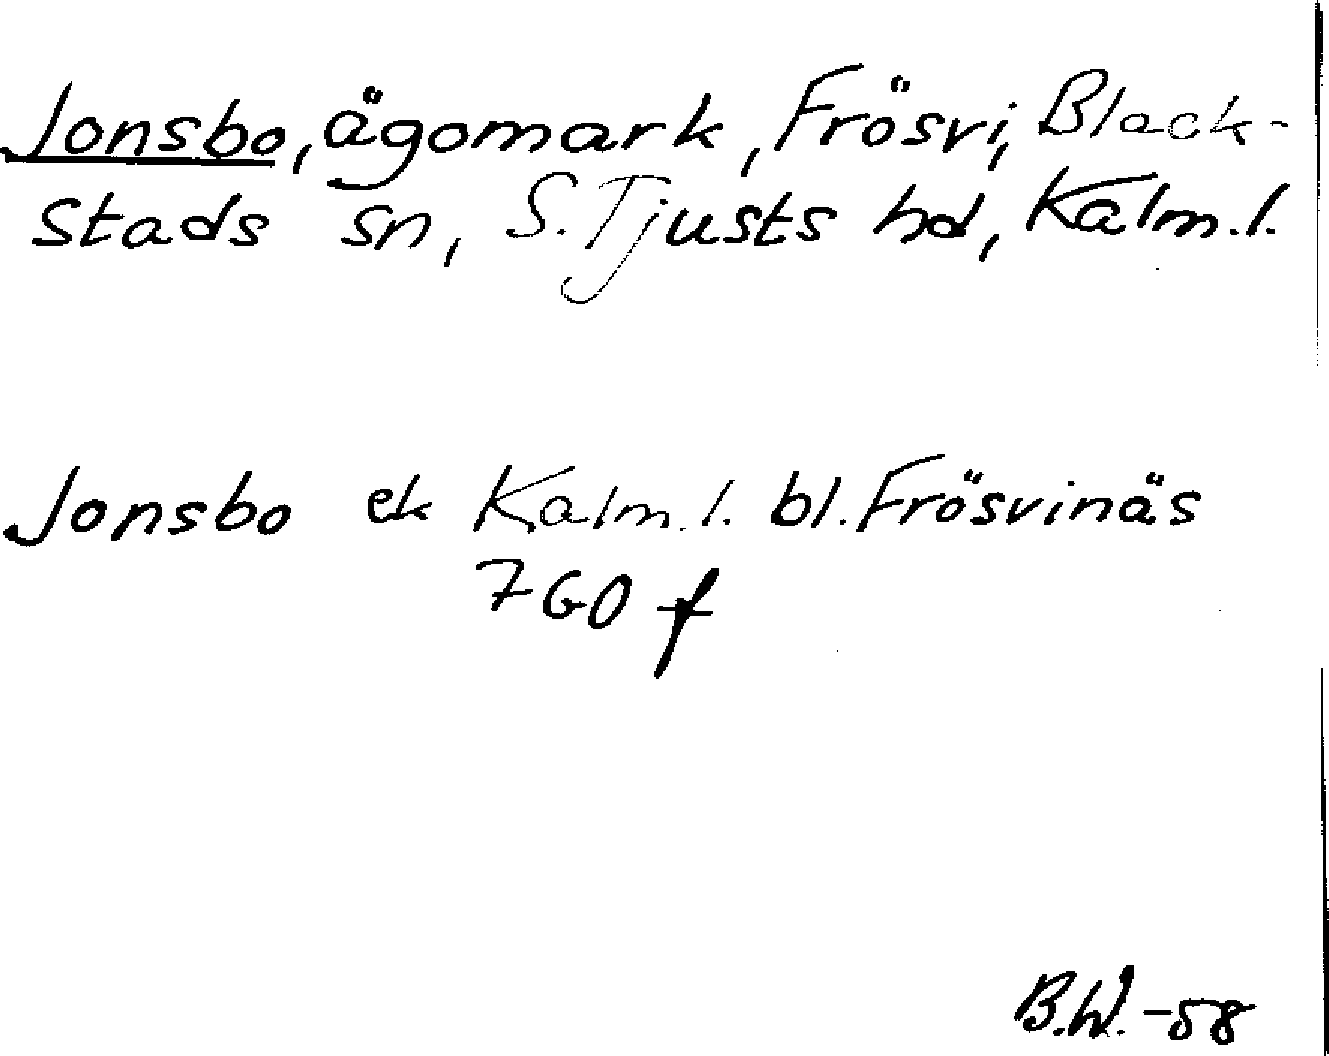 Jonsbo, ägomark, Frösvi, Black-
stads sn, S. Tjusts hd, Kalm. l.
Jonsbo ek Kalm. l. bl. Frösvinäs
7 GO f
B.W. -58